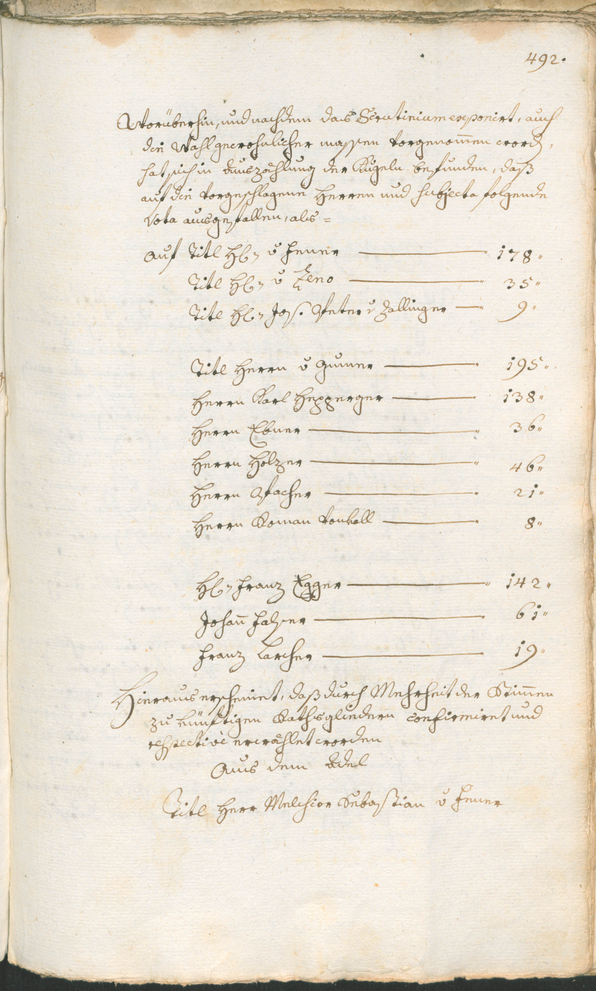 492.
Vorüberhin, und nachdem das Scrutinium exponirt, auch
die Wahl gewohnlicher massen vorgenommen word,
hat sich in Auszählung der Kugeln befunden, daß
auf die vorgeschlagene Herren und Subjecta folgende
Vota ausgefallen, als =
auf Titl H: v Jenner 178.
Titl H: v Zeno 35.
Titl H: Jos. Peter v Zallinger 9.
Titl Herrn v Gumer 195.
Herrn Karl Hepperger 138.
Herrn Ebner 36.
Herrn Holzer 46.
Herrn Pacher 21.
Herrn Roman 8.
H: Franz Egger 142.
Johann 61.
Franz Larcher 19.
Hieraus erscheinet, daß durch Mehrheit der Stimmen
zu künftigen Rathsgliedern confirmiret und
respective erwählet worden
Aus dem Adel
Titl Herr Melchior Sebastian v Jenner